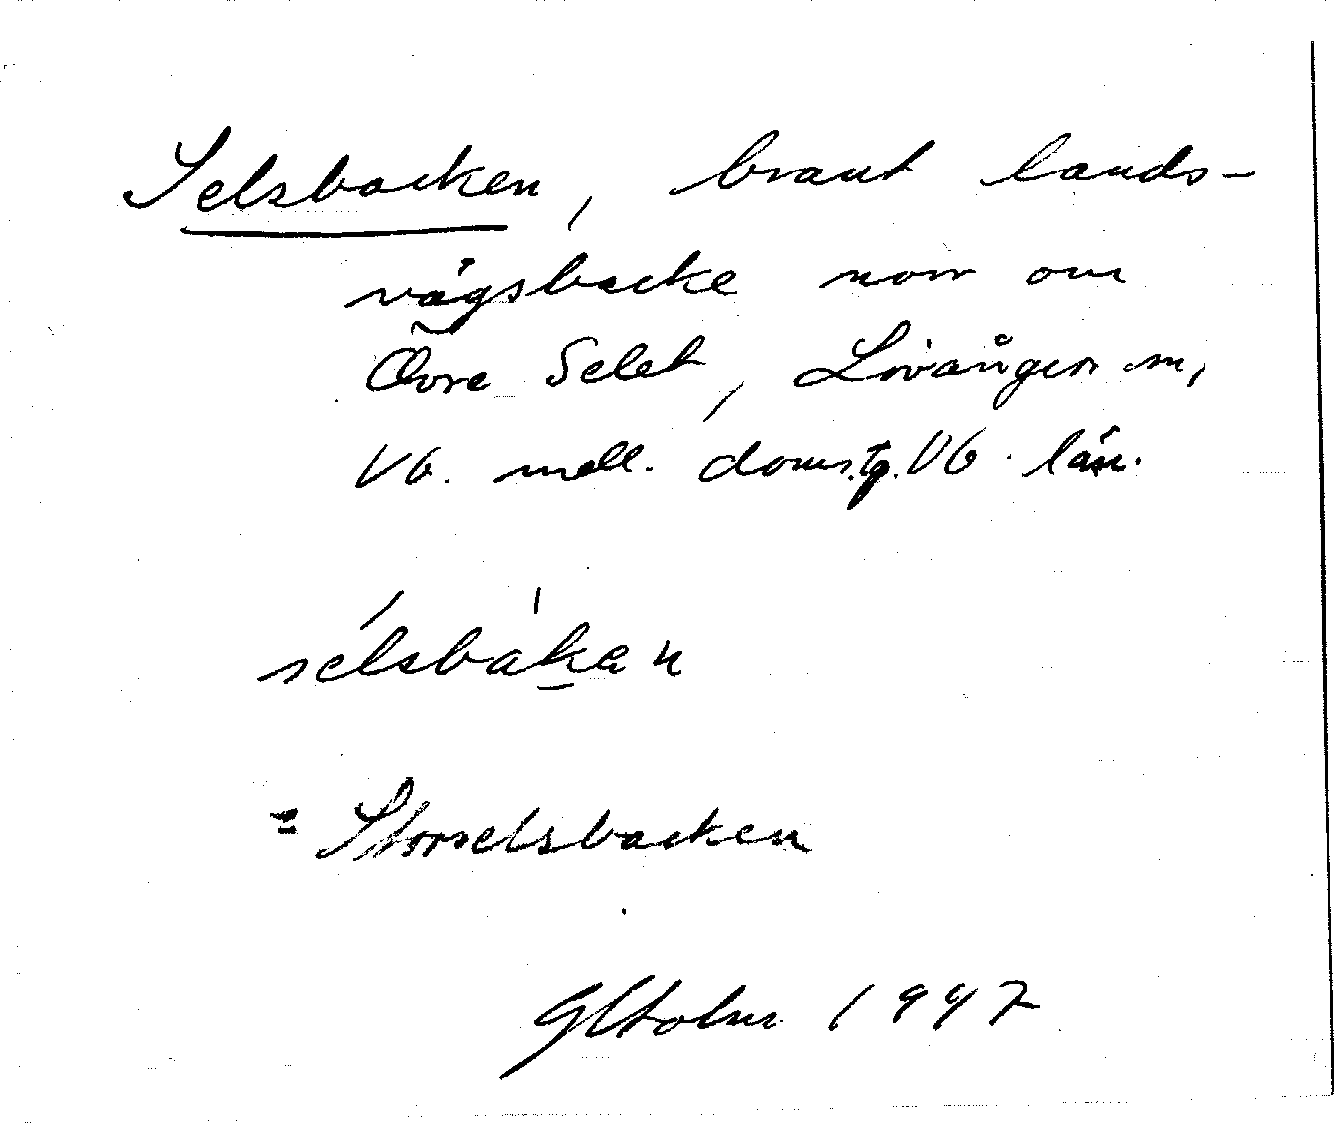 Selsbacken, brant lands-
vägsbacke norr om
Övre Selet, Lövånger sn,
Vb. mell. doms.tg. Vb. län.
sélsbàken
= Storselsbacken
1947